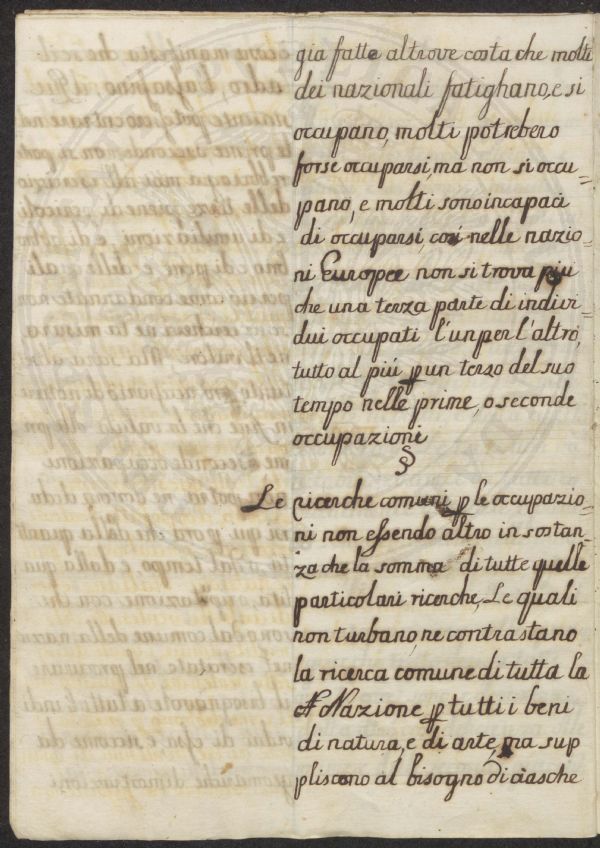 gia fatte altrove costa che molti
dei nazionali fatighano, e si
occupano, molti potrebero
forse occuparsi, ma non si occu-
pano, e molti sono incapaci
di occuparsi, così nelle nazio=
ni Europee non si trova più
che una terza parte di indivi=
dui occupati l'un per l'altro,
tutto al piú p un terzo del suo
tempo nelle prime, o seconde
occupazioni
§
Le ricerche comuni p le occupazio=
ni non essendo altro in sostan=
za che la somma di tutte quelle
particolari ricerche, Le quali
non turbano, ne contrastano
la ricerca comune di tutta la
Nazione p tutti i beni
di natura, e di arte, ma sup
pliscono al bisogno di ciasche